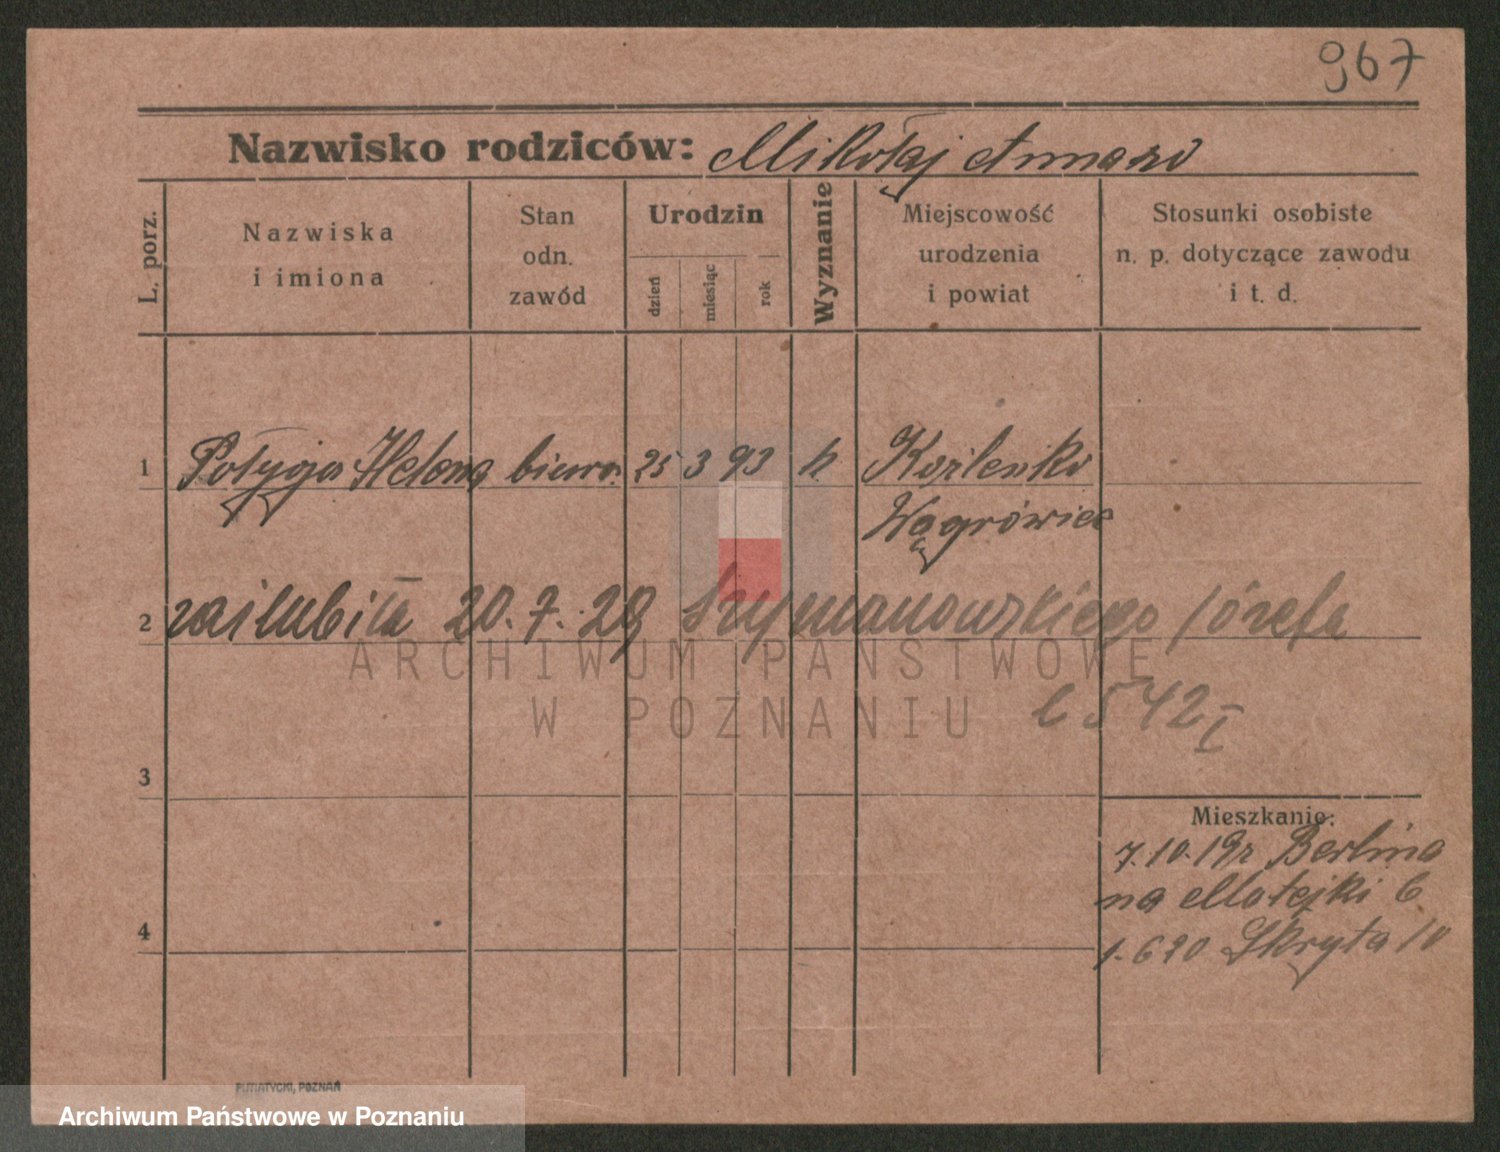 967
Nazwisko rodziców: Mikołaj Anna
L. porz.
Nazwiska i imiona
Stan odn. zawód
Urodzin
dzień
miesiąc
rok
Wyznanie
Miejscowość urodzenia i powiat
Stosunki osobiste n. p. dotyczące zawodu i t. d.
1 Helena biuro. 25 3 93 k.
Wągrówiec
2 zaślubiła 20.7.28 Szymanowskiego Józefa
l 542 I
3
Mieszkanie:
7.10.19r Berlina
na Matejki 6
4
1.620 Skryta 10
PUTIATYCKI, POZNAŃ
ARCHIWUM PAŃSTWOWE
W POZNANIU
Archiwum Państwowe w Poznaniu